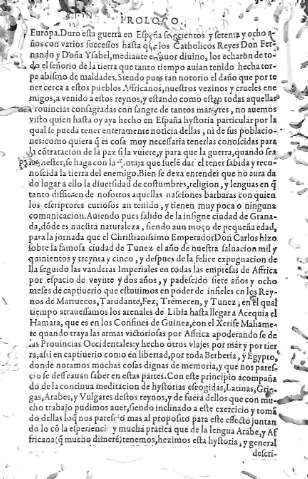 PROLOGO.
Europa. Duro esta guerra en España setecientos y setenta y ocho años
con varios successos hasta q̃ los Catholicos Reyes Don Fernando
y Doña Ysabel, mediante el fauor diuino, los echarõ de todo
el señorio de la tierra que tanto tiempo auian tenido hecha torpe
abismo de maldades. Siendo pues tan notorio el daño que por tener
cerca a estos pueblos Affricanos, nuestros vezinos y crueles enemigos,
a venido a estos reynos, y estando como estan todas aquellas
Prouincias consagradas con sangre de tantos martyres, no auemos
visto quien hasta oy aya hecho en España hystoria particular por la
qual se pueda tener enteramente noticia dellas, ni de sus poblaciones:
como quiera q̃ es cosa muy necessaria tenerlas conoscidas para
la contratacion de la paz si la vuiere, y para quando sea
se haga con la ventaja que suele dar el tener sabida y reconoscida
la tierra del enemigo. Bien se dexa entender que no aura dado
lugar a ello la diuersidad de costumbres, religion, y lenguas en q̃
tanto difficren de nosotros aquellas nasciones barbaras con quien
los escriptores curiosos an tenido, y tienen muy poca o ninguna
comunicacion. Auiendo pues salido de la insigne ciudad de Granada,
dõde es nuestra naturaleza, siendo aun moço de pequeña edad,
para la jornada que el Christianissimo Emperador Don Carlos hizo
sobre la famosa ciudad de Tunez el año de nuestra saluacion mil y
quinientos y treynta y cinco, y despues de la felice expugnacion della
seguido las vanderas Imperiales en todas las empresas de Affrica
por espacio de veynte y dos años, y padescido siete años y ocho
meses de captiuerio que estuuimos en poder de infieles en los Reynos
de Marruecos, Tarudante, Fez, Tremecen, y Tunez, en el qual
tiempo atrauessamos los arenales de Libia hasta llegar a Acequia el
Hamara, que es en los Confines de Guinea, con el Xerife Mahamete
quando traya las armas victoriosas por Affrica apoderandose de
las Prouincias Occidentales: y hecho otros viajes por mar y por tierra,
assi en captiuerio como en libertad, por toda Berberia, y Egypto,
donde notamos muchas cosas dignas de memoria, y que nos parescio
se dessearian saber en estas partes. Con este principio acompañado
de la continua meditacion de hystorias escogidas, Latinas, Griegas,
Arabes, y Vulgares destos reynos, y de fuera dellos que con mucho
trabajo pudimos auer, siendo inclinado a este exercicio y tomãdo
dellas lo q̃ nos parescio mas al proposito para este effecto juntando
lo cõ la esperiencia y mucha pratica que de la lengua Arabe, y Affricana
(q̃ mucho difiere) tenemos, hezimos esta hystoria, y general
descri-